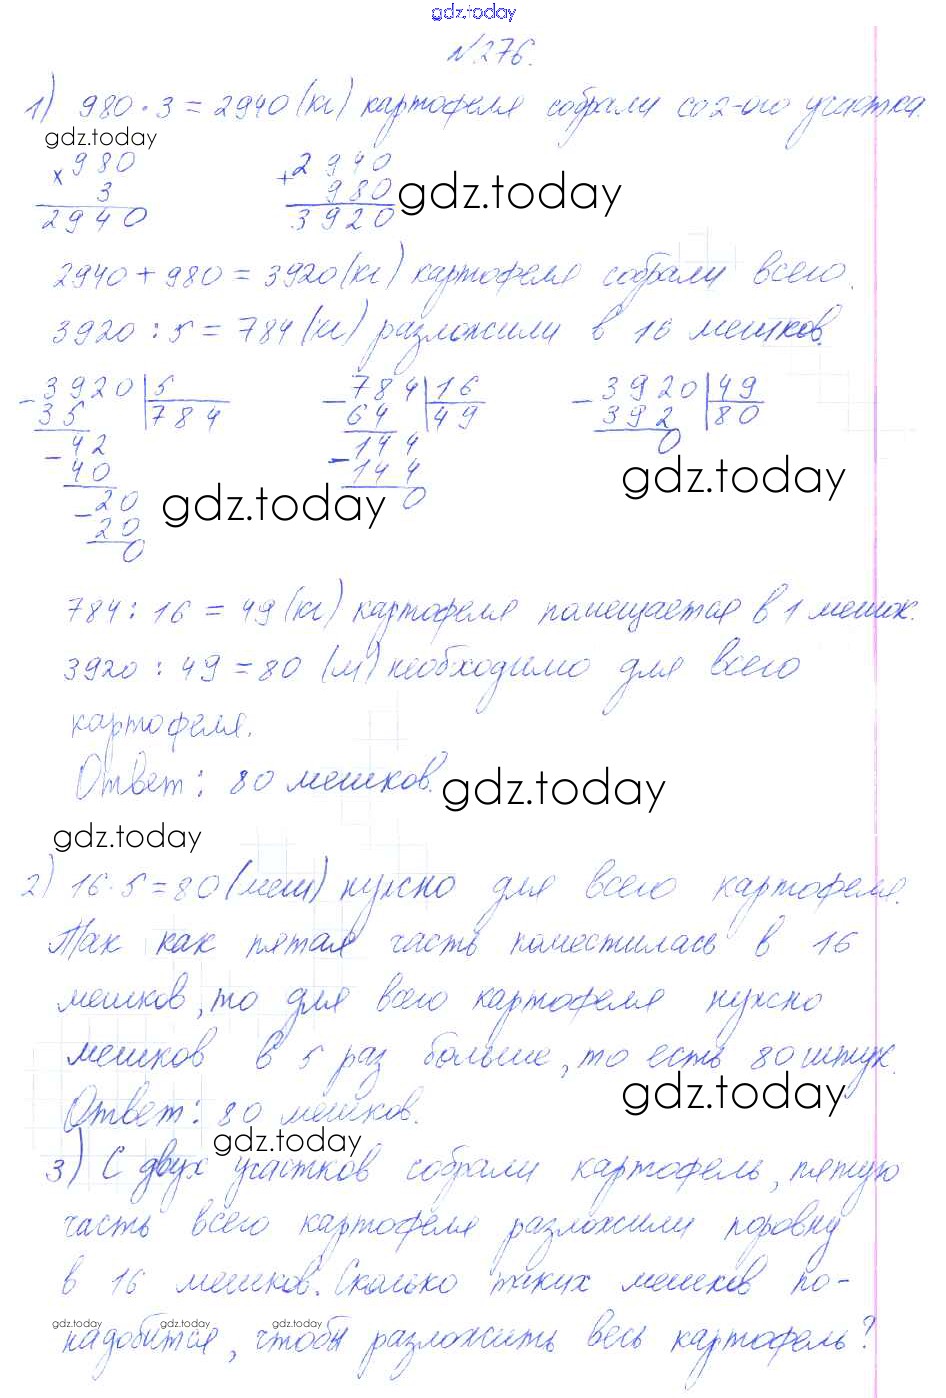 gdz.today
№276.
1) 980 · 3 = 2940 (кг) картофеля собрали со 2-ого участка.
gdz.today
× 980
3
2940
+ 2940
980
3920
gdz.today
2940 + 980 = 3920 (кг) картофеля собрали всего.
3920 : 5 = 784 (кг) разложили в 16 мешков.
- 3920 | 5
35 | 784
- 42
40
- 20
20
0
- 784 | 16
64 | 49
- 144
144
0
- 3920 | 49
392 | 80
0
gdz.today
gdz.today
784 : 16 = 49 (кг) картофеля помещается в 1 мешок.
3920 : 49 = 80 (м) необходимо для всего
картофеля.
Ответ: 80 мешков.
gdz.today
gdz.today
2) 16 · 5 = 80 (меш) нужно для всего картофеля.
Так как пятая часть поместилась в 16
мешков, то для всего картофеля нужно
мешков в 5 раз больше, то есть 80 штук.
gdz.today
Ответ: 80 мешков.
gdz.today
3) С двух участков собрали картофель, пятую
часть всего картофеля разложили поровну
в 16 мешков. Сколько таких мешков по-
надобится, чтобы разложить весь картофель?
gdz.today gdz.today gdz.today gdz.today